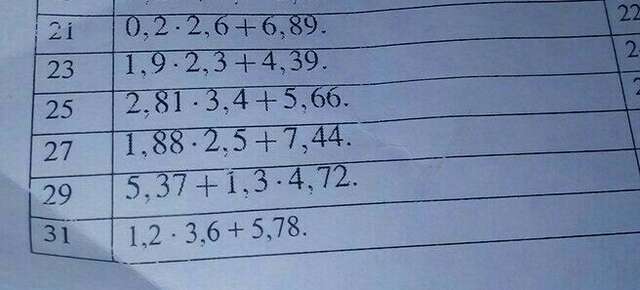 21 0,2 · 2,6 + 6,89. 22
23 1,9 · 2,3 + 4,39. 2
25 2,81 · 3,4 + 5,66.
27 1,88 · 2,5 + 7,44.
29 5,37 + 1,3 · 4,72.
31 1,2 · 3,6 + 5,78.